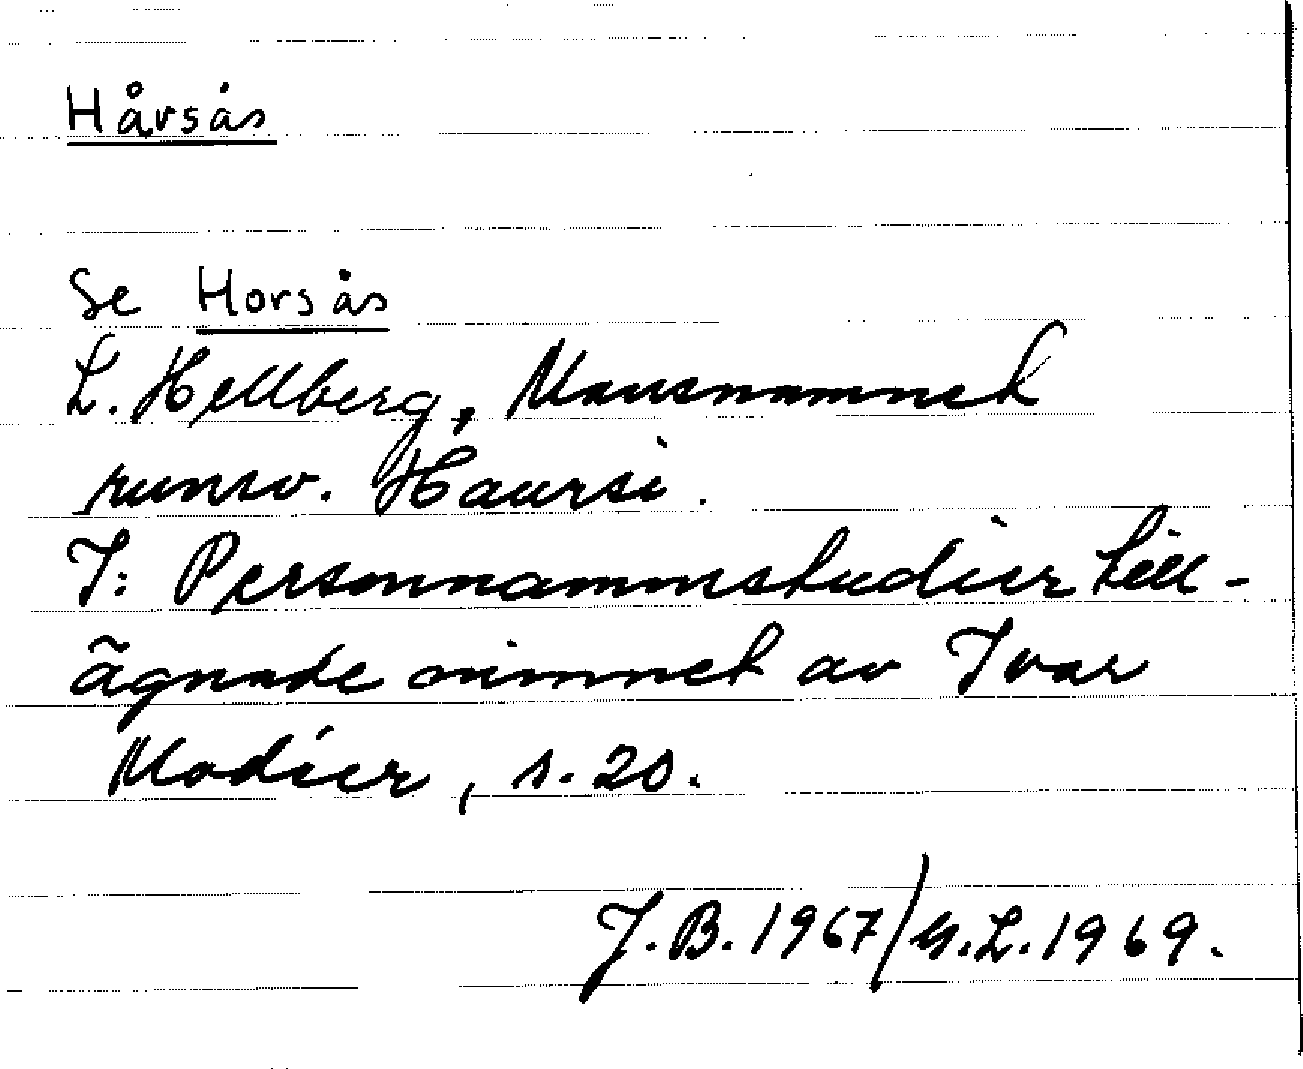 Hårsås
Se Horsås
L. Hellberg, Mansnamnet
runsv. Haursi.
I: Personnamnstudier till-
ägnade minnet av Ivar
Modéer, s. 20.
J.B. 1967/G.L. 1969.